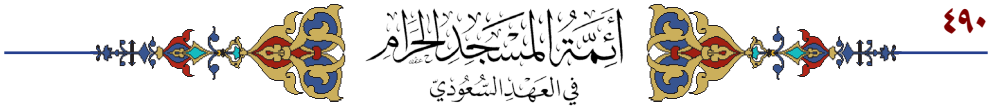 ٤٩٠
أئمة المسجد الحرام
في العهد السعودي